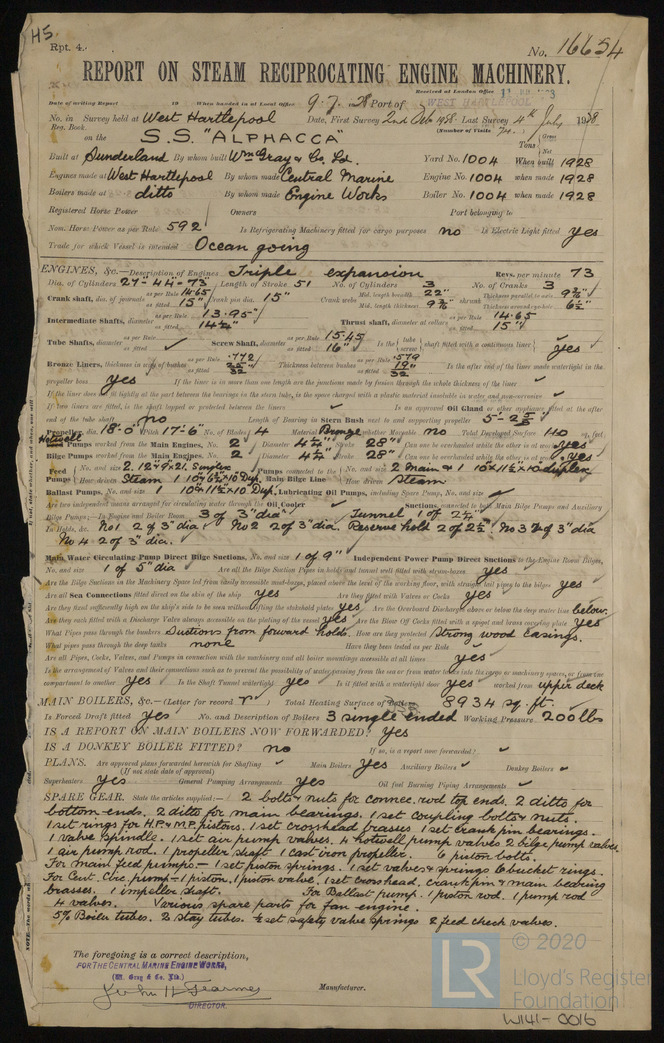 H5
Rpt. 4.
No. 16654
REPORT ON STEAM RECIPROCATING ENGINE MACHINERY.
Received at London Office
Date of writing Report 19 When handed in at Local Office 9. 7. 28 Port of WEST HARTLEPOOL
No. in Survey held at West Hartlepool Date, First Survey 2nd Feb 1928 Last Survey 4th July 1928
Reg. Book. (Number of Visits 74.)
on the S.S. "ALPHACCA" Tons Gross Net
Built at Sunderland By whom built Wm Gray & Co Ld. Yard No. 1004 When built 1928
Engines made at West Hartlepool By whom made Central Marine Engine No. 1004 when made 1928
Boilers made at ditto By whom made Engine Works Boiler No. 1004 when made 1928
Registered Horse Power Owners Port belonging to
Nom. Horse Power as per Rule 592 Is Refrigerating Machinery fitted for cargo purposes no Is Electric Light fitted yes
Trade for which Vessel is intended Ocean going
ENGINES, &c.—Description of Engines Triple expansion Revs. per minute 73
Dia. of Cylinders 27-44-73" Length of Stroke 51 No. of Cylinders 3 No. of Cranks 3
Crank shaft, dia. of journals as per Rule 14.65 as fitted 15" Crank pin dia. 15" Crank webs Mid. length breadth 22" Mid. length thickness 9⅜" shrunk Thickness parallel to axis 9⅜" Thickness around eye-hole 6½"
Intermediate Shafts, diameter as per Rule 13.95" as fitted 14¼" Thrust shaft, diameter at collars as per Rule 14.65 as fitted 15"
Tube Shafts, diameter as per Rule as fitted Screw Shaft, diameter as per Rule 15.45 as fitted 16" Is the tube screw shaft fitted with a continuous liner yes
Bronze Liners, thickness in way of bushes as per Rule .772 as fitted 25/32" Thickness between bushes as per Rule .579 as fitted 19/32" Is the after end of the liner made watertight in the
propeller boss yes If the liner is in more than one length are the junctions made by fusion through the whole thickness of the liner
If the liner does not fit tightly at the part between the bearings in the stern tube, is the space charged with a plastic material insoluble in water and non-corrosive
If two liners are fitted, is the shaft lapped or protected between the liners Is an approved Oil Gland or other appliance fitted at the after
end of the tube shaft no Length of Stern Bush next to and supporting propeller 5'-2⅝"
Propeller, dia. 18'-0" Pitch 17'-6" No. of Blades 4 Material Bronze whether Moveable no Total Developed Surface 110 sq. feet
Hotwell Pumps worked from the Main Engines, No. 2 Diameter 4½" Stroke 28" Can one be overhauled while the other is at work yes
Bilge Pumps worked from the Main Engines, No. 2 Diameter 4½" Stroke 28" Can one be overhauled while the other is at work yes
Feed Pumps No. and size 2. 12"×9×21. Simplex How driven Steam Pumps connected to the Main Bilge Line No. and size 2 Main & 1 10×11½×10 duplex How driven Steam
Ballast Pumps, No. and size 1 10"×11½×10 Dup. Lubricating Oil Pumps, including Spare Pump, No. and size
Are two independent means arranged for circulating water through the Oil Cooler Suctions, connected to both Main Bilge Pumps and Auxiliary
Bilge Pumps;—In Engine and Boiler Room 3 of 3" dia Tunnel 1 of 2½"
In Holds, &c. No 1 2 of 3" dia No 2 2 of 3" dia. Reserve hold 2 of 2½" No 3 2 of 3" dia
No 4 2 of 3" dia.
Main Water Circulating Pump Direct Bilge Suctions, No. and size 1 of 9" Independent Power Pump Direct Suctions to the Engine Room Bilges,
No. and size 1 of 5" dia Are all the Bilge Suction Pipes in holds and tunnel well fitted with strum-boxes yes
Are the Bilge Suctions in the Machinery Space led from easily accessible mud-boxes, placed above the level of the working floor, with straight tail pipes to the bilges yes
Are all Sea Connections fitted direct on the skin of the ship yes Are they fitted with Valves or Cocks yes
Are they fixed sufficiently high on the ship's side to be seen without lifting the stokehold plates yes Are the Overboard Discharges above or below the deep water line below.
Are they each fitted with a Discharge Valve always accessible on the plating of the vessel yes Are the Blow Off Cocks fitted with a spigot and brass covering plate yes
What Pipes pass through the bunkers Suctions from forward holds. How are they protected Strong wood Casings.
What pipes pass through the deep tanks none Have they been tested as per Rule
Are all Pipes, Cocks, Valves, and Pumps in connection with the machinery and all boiler mountings accessible at all times yes
Is the arrangement of Valves and their connections such as to prevent the possibility of water passing from the sea or from water tanks into the cargo or machinery spaces, or from one
compartment to another yes Is the Shaft Tunnel watertight yes Is it fitted with a watertight door yes worked from upper deck
MAIN BOILERS, &c.—(Letter for record r) Total Heating Surface of Boilers 8934 sq. ft.
Is Forced Draft fitted yes No. and Description of Boilers 3 single ended Working Pressure 200 lbs
IS A REPORT ON MAIN BOILERS NOW FORWARDED? yes
IS A DONKEY BOILER FITTED? no If so, is a report now forwarded?
PLANS. Are approved plans forwarded herewith for Shafting Main Boilers yes Auxiliary Boilers Donkey Boilers
(If not state date of approval)
Superheaters yes General Pumping Arrangements yes Oil fuel Burning Piping Arrangements
SPARE GEAR. State the articles supplied:— 2 bolts & nuts for connec. rod top ends. 2 ditto for
bottom ends. 2 ditto for main bearings. 1 set coupling bolts & nuts.
1 set rings for H.P. & M.P. pistons. 1 set crosshead brasses 1 set crank pin bearings.
1 valve spindle. 1 set air pump valves. 4 hotwell pump valves 2 bilge pump valves
1 air pump rod. 1 propeller shaft 1 cast iron propeller. 6 piston bolts.
For main feed pumps:— 1 set piston springs. 1 set valves & springs 6 bucket rings.
For Cent. Circ. pump:— 1 piston, 1 piston valve, 1 set crosshead, crankpin & main bearing
brasses. 1 impeller shaft. For Ballast pump. 1 piston rod. 1 pump rod
4 valves. Various spare parts for fan engine.
5% Boiler tubes. 2 stay tubes. ½ set safety valve springs 2 feed check valves.
The foregoing is a correct description,
FOR THE CENTRAL MARINE ENGINE WORKS,
(Wm. Gray & Co. Ltd.)
Manufacturer.
DIRECTOR.
© 2020
LR
Lloyd's Register
Foundation
W141-0016